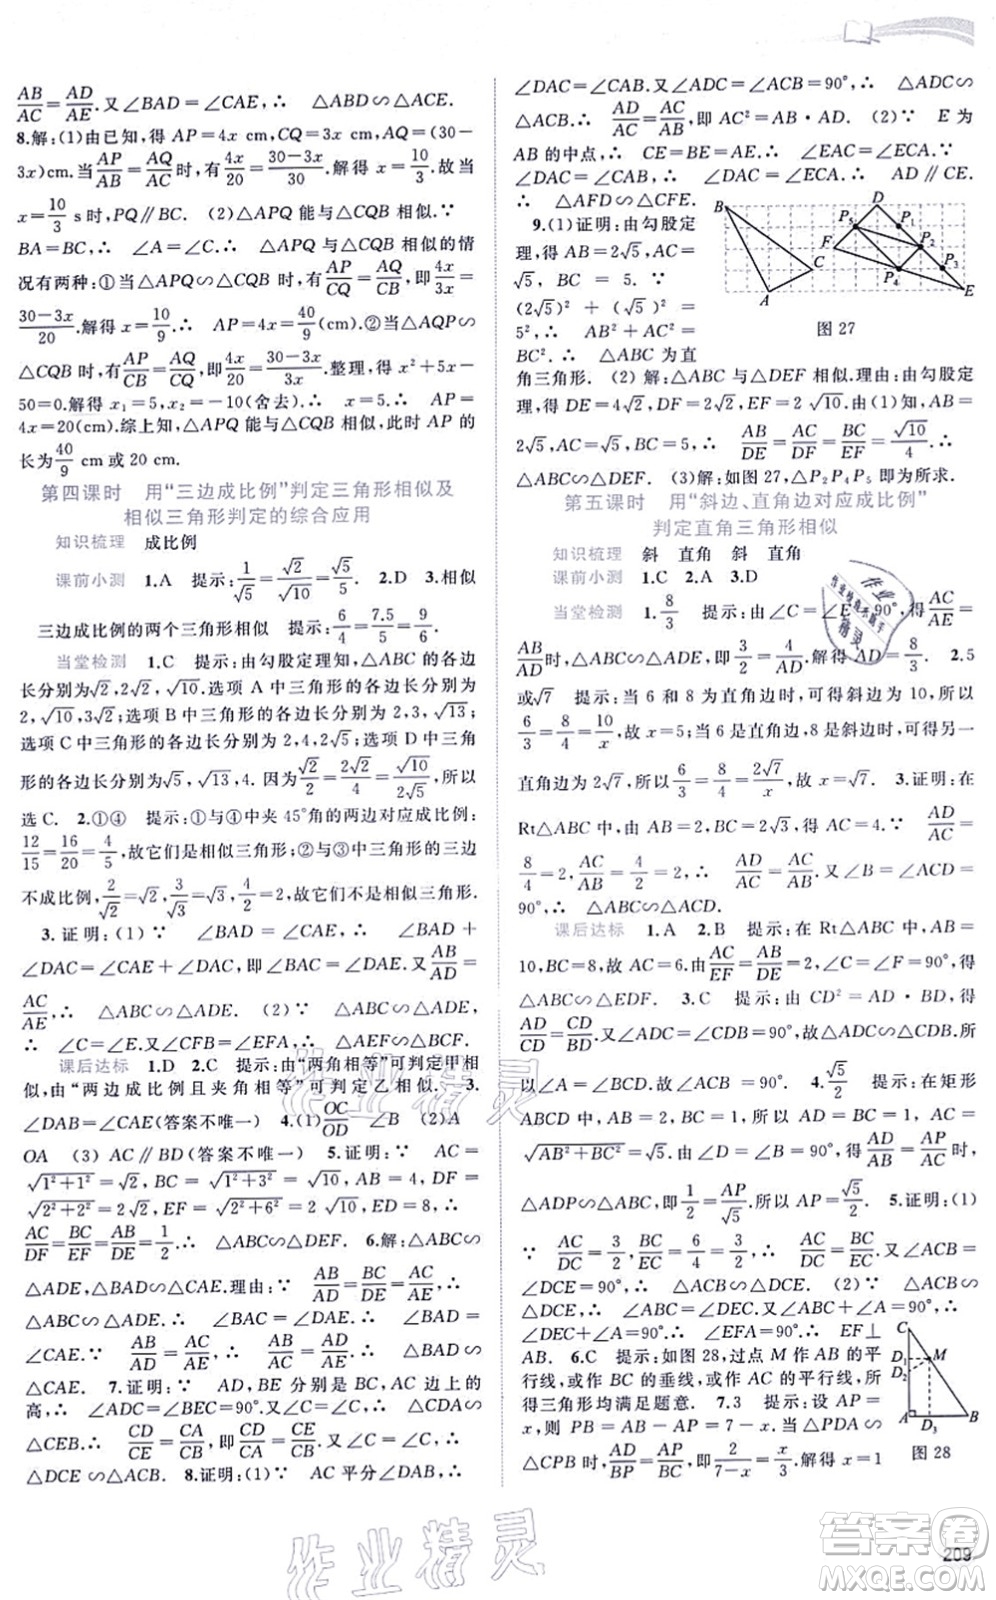 AB/AC=AD/AE.又∠BAD=∠CAE,∴ △ABD∽△ACE.
8.解:(1)由已知,得 AP=4x cm,CQ=3x cm,AQ=(30-
3x)cm.当AP/AB=AQ/AC时,有4x/20=(30-3x)/30.解得 x=10/3.故当
x=10/3 s时,PQ∥BC. (2)△APQ 能与△CQB 相似.∵
BA=BC,∴ ∠A=∠C.∴ △APQ 与△CQB 相似的情
况有两种:①当△APQ∽△CQB 时,有AP/CQ=AQ/CB,即4x/3x=
(30-3x)/20.解得 x=10/9.∴ AP=4x=40/9(cm).②当△AQP∽
△CQB 时,有AP/CB=AQ/CQ,即4x/20=(30-3x)/3x.整理,得 x²+5x-
50=0.解得 x₁=5,x₂=-10(舍去).∴ x=5.∴ AP=
4x=20(cm).综上知,△APQ 能与△CQB 相似,此时 AP 的
长为40/9 cm 或 20 cm.
第四课时 用“三边成比例”判定三角形相似及
相似三角形判定的综合应用
知识梳理 成比例
课前小测 1.A 提示:1/√5=√2/√10=√5/5. 2.D 3.相似
三边成比例的两个三角形相似 提示:6/4=7.5/5=9/6.
当堂检测 1.C 提示:由勾股定理知,△ABC 的各边
长分别为√2,2√2,√10.选项 A 中三角形的各边长分别为
2,√10,3√2;选项 B 中三角形的各边长分别为 2,3,√13;
选项 C 中三角形的各边长分别为 2,4,2√5;选项 D 中三角
形的各边长分别为√5,√13,4√2.因为√2/2=2√2/4=√10/2√5,所以
选 C. 2.①④ 提示:①与④中夹 45°角的两边对应成比例:
12/15=16/20=4/5,故它们是相似三角形;②与③中三角形的三边
不成比例,2/√2=√2,3/√3=√3,4/2=2,故它们不是相似三角形.
3.证明:(1)∵ ∠BAD=∠CAE,∴ ∠BAD+
∠DAC=∠CAE+∠DAC,即∠BAC=∠DAE.又AB/AD=
AC/AE,∴ △ABC∽△ADE. (2)∵ △ABC∽△ADE,
∴ ∠C=∠E.又∠CFB=∠EFA,∴ △AEF∽△BCF.
课后达标 1.D 2.C 提示:由“两角相等”可判定甲相
似,由“两边成比例且夹角相等”可判定乙相似. 3.
∠DAB=∠CAE(答案不唯一) 4.(1)OC/OD ∠B (2)A
OA (3) AC∥BD(答案不唯一) 5.证明:∵ AC=
√(1²+1²)=√2,BC=√(1²+3²)=√10,AB=4,DF=
√(2²+2²)=2√2,EF=√(2²+6²)=2√10,ED=8,∴
AC/DF=BC/EF=AB/DE=1/2.∴ △ABC∽△DEF. 6.解:△ABC∽
△ADE,△BAD∽△CAE.理由:∵ AB/AD=BC/DE=AC/AE,∴
△ABC∽△ADE.∴ ∠BAC=∠DAE.∴ ∠BAD=
∠CAE.∵ AB/AD=AC/AE,∴ AB/AC=AD/AE.∴ △BAD∽
△CAE. 7.证明:∵ AD,BE 分别是 BC,AC 边上的
高,∴ ∠ADC=∠BEC=90°.又∠C=∠C,∴ △CDA∽
△CEB.∴ CD/CE=CA/CB,即CD/CA=CE/CB.又∠C=∠C,∴
△DCE∽△ACB. 8.证明:(1)∵ AC 平分∠DAB,∴
∠DAC=∠CAB.又∠ADC=∠ACB=90°,∴ △ADC∽
△ACB.∴ AD/AC=AC/AB,即 AC²=AB·AD. (2)∵ E 为
AB 的中点,∴ CE=BE=AE.∴ ∠EAC=∠ECA.∵
∠DAC=∠CAB,∴ ∠DAC=∠ECA.∴ AD∥CE.
∴ △AFD∽△CFE.
9.(1)证明:由勾股定
理,得 AB=2√5,AC=
√5,BC=5.∵
(2√5)²+(√5)²=
5²,∴ AB²+AC²=
BC².∴ △ABC 为直
B D P₅ P₁ F P₂ C P₄ P₃ A E
图 27
角三角形. (2)解:△ABC 与△DEF 相似.理由:由勾股定
理,得 DE=4√2,DF=2√2,EF=2√10.由(1)知,AB=
2√5,AC=√5,BC=5,∴ AB/DE=AC/DF=BC/EF=√10/4.∴
△ABC∽△DEF. (3)解:如图 27,△P₂P₄P₅即为所求.
第五课时 用“斜边、直角边对应成比例”
判定直角三角形相似
知识梳理 斜 直角 斜 直角
课前小测 1.C 2.A 3.D
当堂检测 1.8/3 提示:由∠C=∠E=90°,得AC/AE=
AB/AD时,两三角形相似,即3/2=4/AD.解得 AD=8/3. 2.5
或√7 提示:当 6 和 8 为直角边时,可得斜边为 10,所以
6/3=8/4=10/x,故 x=5;当 6 是直角边,8 是斜边时,可得另一
直角边为 2√7,所以6/3=8/4=2√7/x,故 x=√7. 3.证明:在
Rt△ABC 中,由 AB=2,BC=2√3,得 AC=4.∵ AD/AC=
8/4=2,AC/AB=4/2=2,∴ AD/AC=AC/AB.又∠B=∠CAD=
90°,∴ △ABC∽△ACD.
课后达标 1.A 2.B 提示:在 Rt△ABC 中,AB=
10,BC=8,所以 AC=6.因为AC/EF=AB/DE=2,∠C=∠F=90°,
△ABC∽△EDF. 3.C 提示:由 CD²=AD·BD,得
AD/CD=CD/BD.又∠ADC=∠CDB=90°,故△ADC∽△CDB.所
以∠A=∠BCD.所以∠ACB=90°. 4.√5/2 提示:在矩形
ABCD 中,AB=2,BC=1,所以 AD=BC=1,AC=
√(AB²+BC²)=√5.由∠D=∠APE=90°,得AD/AB=AP/AC时,
△ADP∽△ABC,即1/2=AP/√5.所以 AP=√5/2. 5.证明:(1)
∵ AC/DC=3/2,BC/EC=6/4=3/2,∴ AC/DC=BC/EC.又∠ACB=
∠DCE=90°,∴ △ACB∽△DCE. (2)∵ △ACB∽
△DCE,∴ ∠ABC=∠DEC.又∠ABC+∠A=90°,∴
∠DEC+∠A=90°.∴ ∠EFA=90°.∴ EF⊥
AB. 6.C 提示:如图 28,过点 M 作 AB 的平
行线,或作 BC 的垂线,或作 AC 的平行线,所
得三角形均满足题意. 7.3 提示:设 AP=
x,则 PB=AB-AP=7-x.当△PDA∽
△CPB 时,AD/BP=AP/BC,即2/(7-x)=x/3.解得 x=1
C D₁ M D₂ A D₃ B
图 28
作业精灵
作业精灵
答案圈
MXQE.COM
209